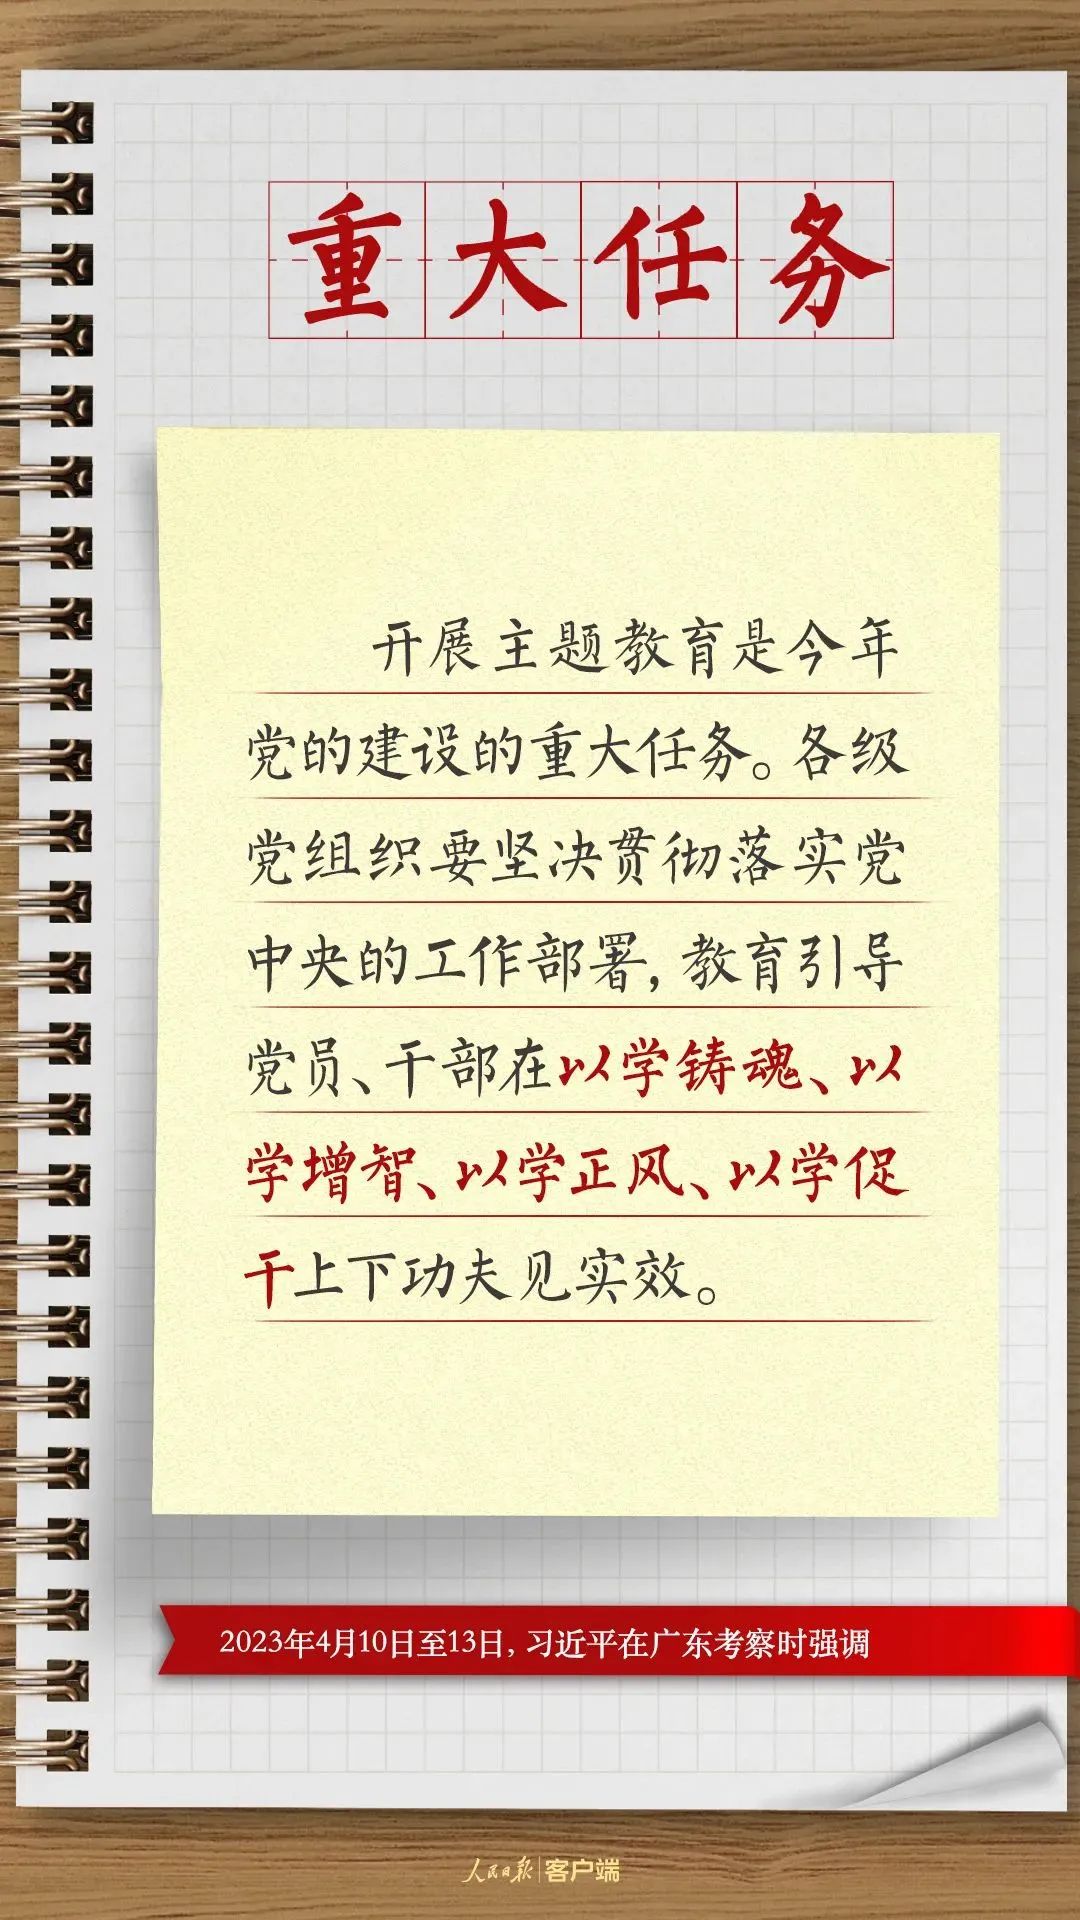 重大任务
开展主题教育是今年
党的建设的重大任务。各级
党组织要坚决贯彻落实党
中央的工作部署，教育引导
党员、干部在以学铸魂、以
学增智、以学正风、以学促
干上下功夫见实效。
2023年4月10日至13日，习近平在广东考察时强调
人民日报|客户端